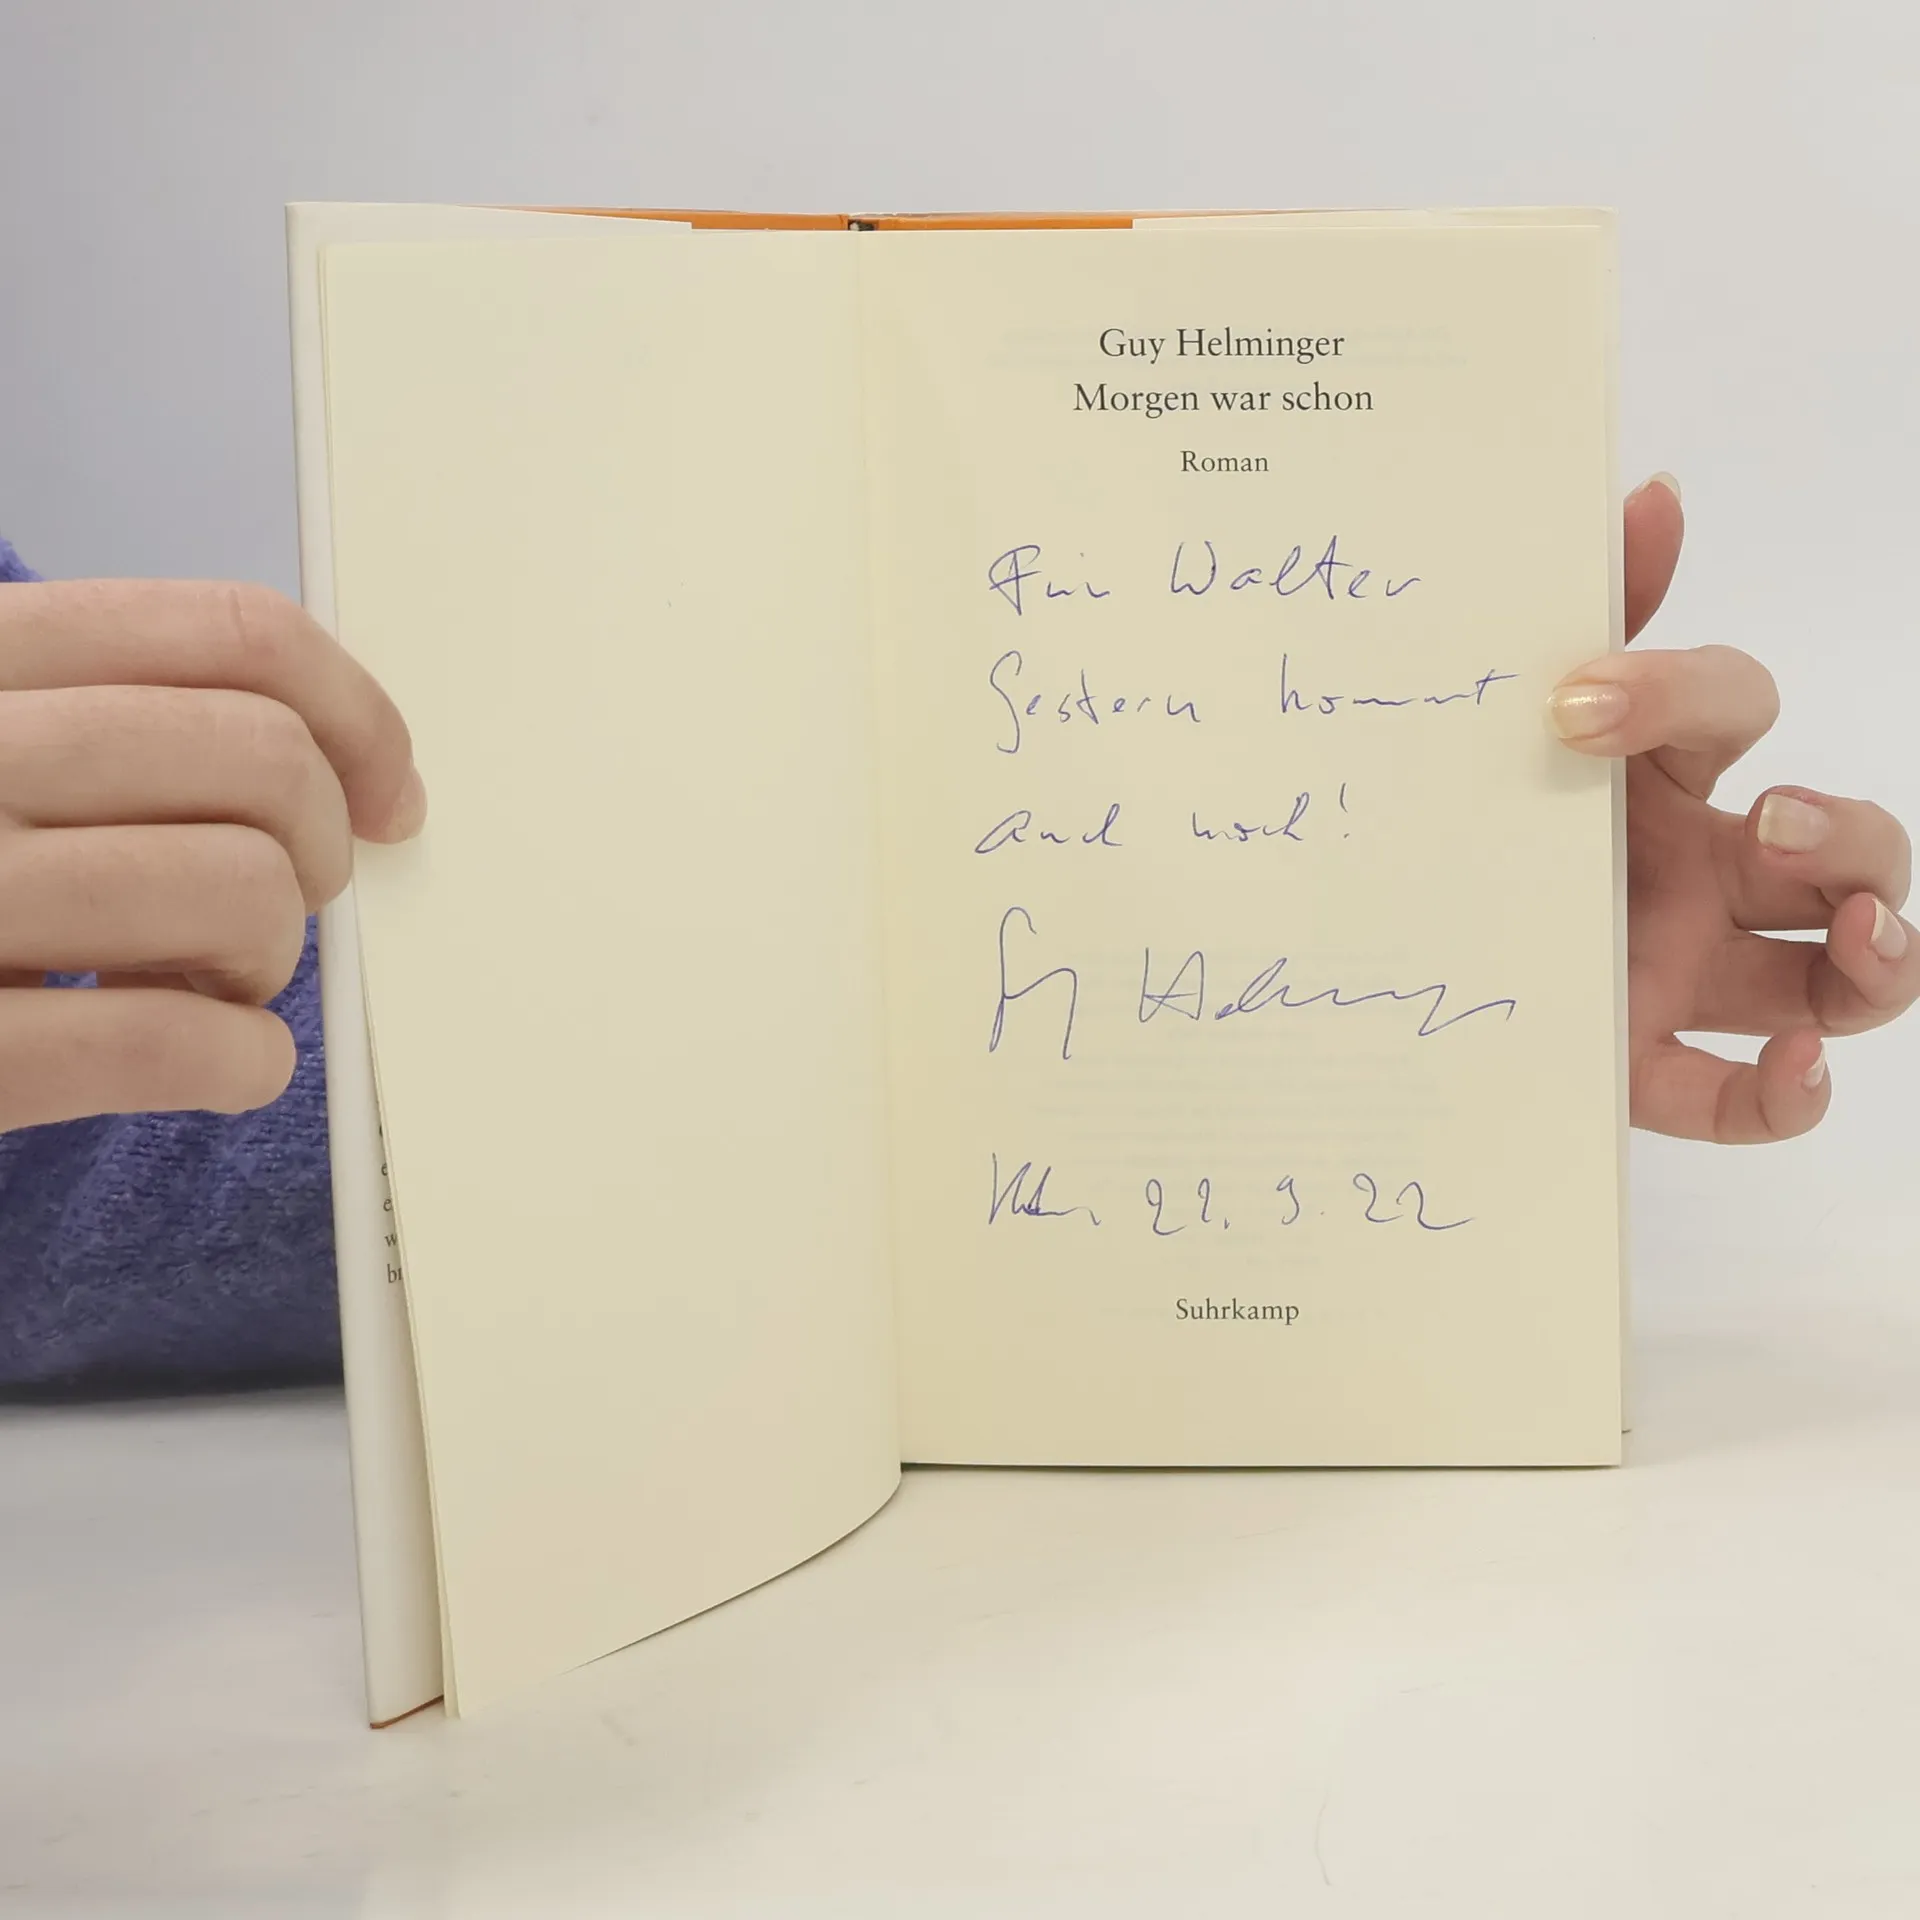 Guy Helminger
Morgen war schon
Roman
Für Walter
Gestern kommt
auch noch!
Guy Helminger
22. 9. 22
Suhrkamp